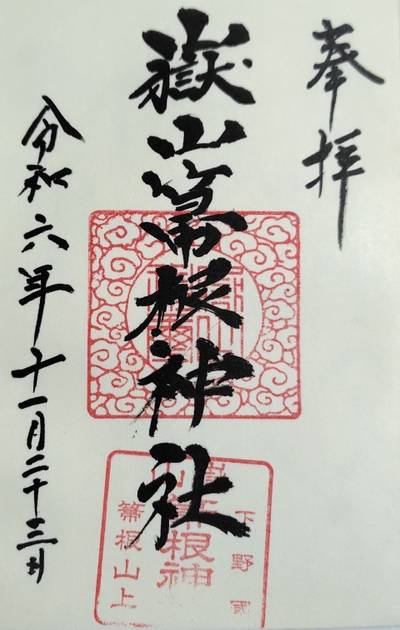 奉拝
嶽山箒根神社
令和六年十一月二十三日
下野國
箒根山上